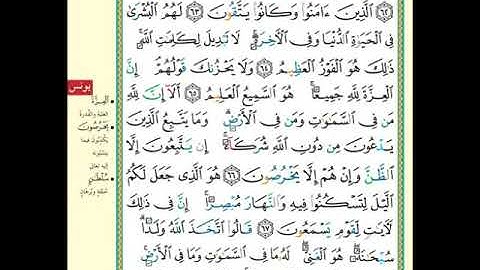 ٱلَّذِينَ ءَامَنُوا۟ وَكَانُوا۟ يَتَّقُونَ ٦٣ لَهُمُ ٱلْبُشْرَىٰ
فِى ٱلْحَيَوٰةِ ٱلدُّنْيَا وَفِى ٱلْـَٔاخِرَةِ ۚ لَا تَبْدِيلَ لِكَلِمَـٰتِ ٱللَّهِ ۚ
ذَٰلِكَ هُوَ ٱلْفَوْزُ ٱلْعَظِيمُ ٦٤ وَلَا يَحْزُنكَ قَوْلُهُمْ ۘ إِنَّ
ٱلْعِزَّةَ لِلَّهِ جَمِيعًا ۚ هُوَ ٱلسَّمِيعُ ٱلْعَلِيمُ ٦٥ أَلَآ إِنَّ لِلَّهِ
مَن فِى ٱلسَّمَـٰوَٰتِ وَمَن فِى ٱلْأَرْضِ ۗ وَمَا يَتَّبِعُ ٱلَّذِينَ
يَدْعُونَ مِن دُونِ ٱللَّهِ شُرَكَآءَ ۚ إِن يَتَّبِعُونَ إِلَّا
ٱلظَّنَّ وَإِنْ هُمْ إِلَّا يَخْرُصُونَ ٦٦ هُوَ ٱلَّذِى جَعَلَ لَكُمُ
ٱلَّيْلَ لِتَسْكُنُوا۟ فِيهِ وَٱلنَّهَارَ مُبْصِرًا ۚ إِنَّ فِى ذَٰلِكَ
لَـَٔايَـٰتٍ لِّقَوْمٍ يَسْمَعُونَ ٦٧ قَالُوا۟ ٱتَّخَذَ ٱللَّهُ وَلَدًا ۗ
سُبْحَـٰنَهُۥ ۖ هُوَ ٱلْغَنِىُّ ۖ لَهُۥ مَا فِى ٱلسَّمَـٰوَٰتِ وَمَا فِى ٱلْأَرْضِ ۚ
يونس
ٱلْعِزَّةَ
الغلبة والقدرة
يَخْرُصُونَ
يكذبون فيما
ينسبونه
إليه تعالى
سُلْطَـٰنٍ
حجة وبرهان